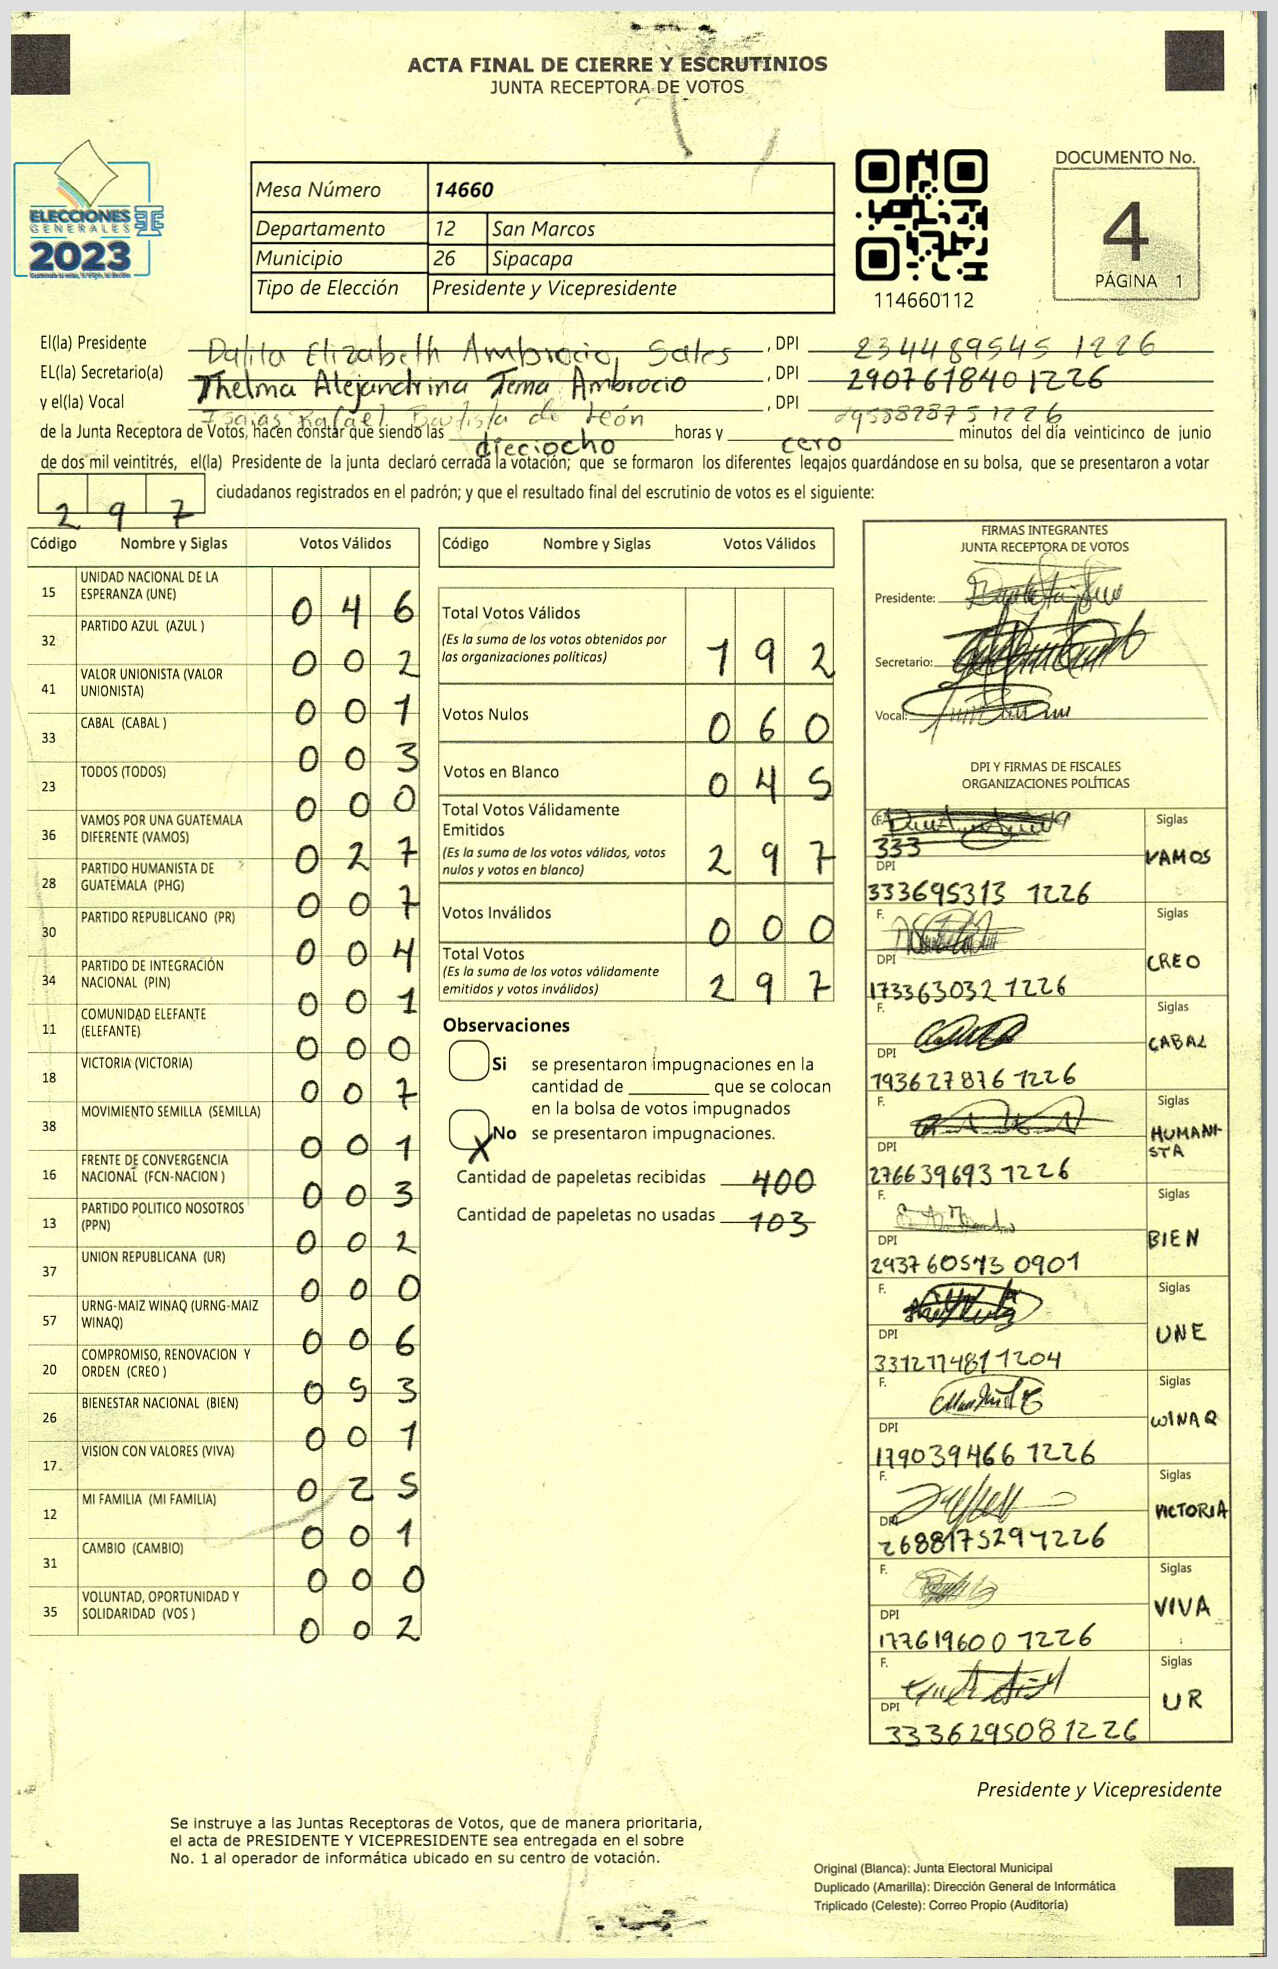 ACTA FINAL DE CIERRE Y ESCRUTINIOS
JUNTA RECEPTORA DE VOTOS
ELECCIONES
GENERALES
2023
Mesa Número 14660
Departamento 12 San Marcos
Municipio 26 Sipacapa
Tipo de Elección Presidente y Vicepresidente
114660112
DOCUMENTO No.
4
PÁGINA 1
El(la) Presidente Dalila Elizabeth Ambrocio Sales, DPI 234489545 1226
EL(la) Secretario(a) Thelma Alejandrina Tema Ambrocio, DPI 290761840 1226
y el(la) Vocal Isaias Rafael Bautista de León, DPI
de la Junta Receptora de Votos, hacen constar que siendo las dieciocho horas y cero minutos del día veinticinco de junio
de dos mil veintitrés, el(la) Presidente de la junta declaró cerrada la votación; que se formaron los diferentes legajos guardándose en su bolsa, que se presentaron a votar
297 ciudadanos registrados en el padrón; y que el resultado final del escrutinio de votos es el siguiente:
Código Nombre y Siglas Votos Válidos
15 UNIDAD NACIONAL DE LA ESPERANZA (UNE) 046
32 PARTIDO AZUL (AZUL ) 002
41 VALOR UNIONISTA (VALOR UNIONISTA) 001
33 CABAL (CABAL ) 003
23 TODOS (TODOS) 000
36 VAMOS POR UNA GUATEMALA DIFERENTE (VAMOS) 027
28 PARTIDO HUMANISTA DE GUATEMALA (PHG) 007
30 PARTIDO REPUBLICANO (PR) 004
34 PARTIDO DE INTEGRACIÓN NACIONAL (PIN) 001
11 COMUNIDAD ELEFANTE (ELEFANTE) 000
18 VICTORIA (VICTORIA) 007
38 MOVIMIENTO SEMILLA (SEMILLA) 001
16 FRENTE DE CONVERGENCIA NACIONAL (FCN-NACION ) 003
13 PARTIDO POLITICO NOSOTROS (PPN) 002
37 UNION REPUBLICANA (UR) 000
57 URNG-MAIZ WINAQ (URNG-MAIZ WINAQ) 006
20 COMPROMISO, RENOVACION Y ORDEN (CREO ) 053
26 BIENESTAR NACIONAL (BIEN) 001
17 VISION CON VALORES (VIVA) 025
12 MI FAMILIA (MI FAMILIA) 001
31 CAMBIO (CAMBIO) 000
35 VOLUNTAD, OPORTUNIDAD Y SOLIDARIDAD (VOS ) 002
Código Nombre y Siglas Votos Válidos
Total Votos Válidos
(Es la suma de los votos obtenidos por
las organizaciones políticas) 192
Votos Nulos 060
Votos en Blanco 045
Total Votos Válidamente
Emitidos
(Es la suma de los votos válidos, votos
nulos y votos en blanco) 297
Votos Inválidos 000
Total Votos
(Es la suma de los votos válidamente
emitidos y votos inválidos) 297
Observaciones
Si se presentaron impugnaciones en la
cantidad de ________ que se colocan
en la bolsa de votos impugnados
X No se presentaron impugnaciones.
Cantidad de papeletas recibidas 400
Cantidad de papeletas no usadas 103
FIRMAS INTEGRANTES
JUNTA RECEPTORA DE VOTOS
Presidente:
Secretario:
Vocal:
DPI Y FIRMAS DE FISCALES
ORGANIZACIONES POLÍTICAS
F. Siglas
333 VAMOS
DPI
333695313 1226
F. Siglas
CREO
DPI
173363032 1226
F. Siglas
CABAL
DPI
193627876 1226
F. Siglas
HUMANI-
STA
DPI
276639693 1226
F. Siglas
BIEN
DPI
293760573 0901
F. Siglas
UNE
DPI
331277481 1204
F. Siglas
WINAQ
DPI
179039466 1226
F. Siglas
VICTORIA
DPI
268817529 1226
F. Siglas
VIVA
DPI
177619600 1226
F. Siglas
UR
DPI
333629508 1226
Presidente y Vicepresidente
Se instruye a las Juntas Receptoras de Votos, que de manera prioritaria,
el acta de PRESIDENTE Y VICEPRESIDENTE sea entregada en el sobre
No. 1 al operador de informática ubicado en su centro de votación.
Original (Blanca): Junta Electoral Municipal
Duplicado (Amarilla): Dirección General de Informática
Triplicado (Celeste): Correo Propio (Auditoría)